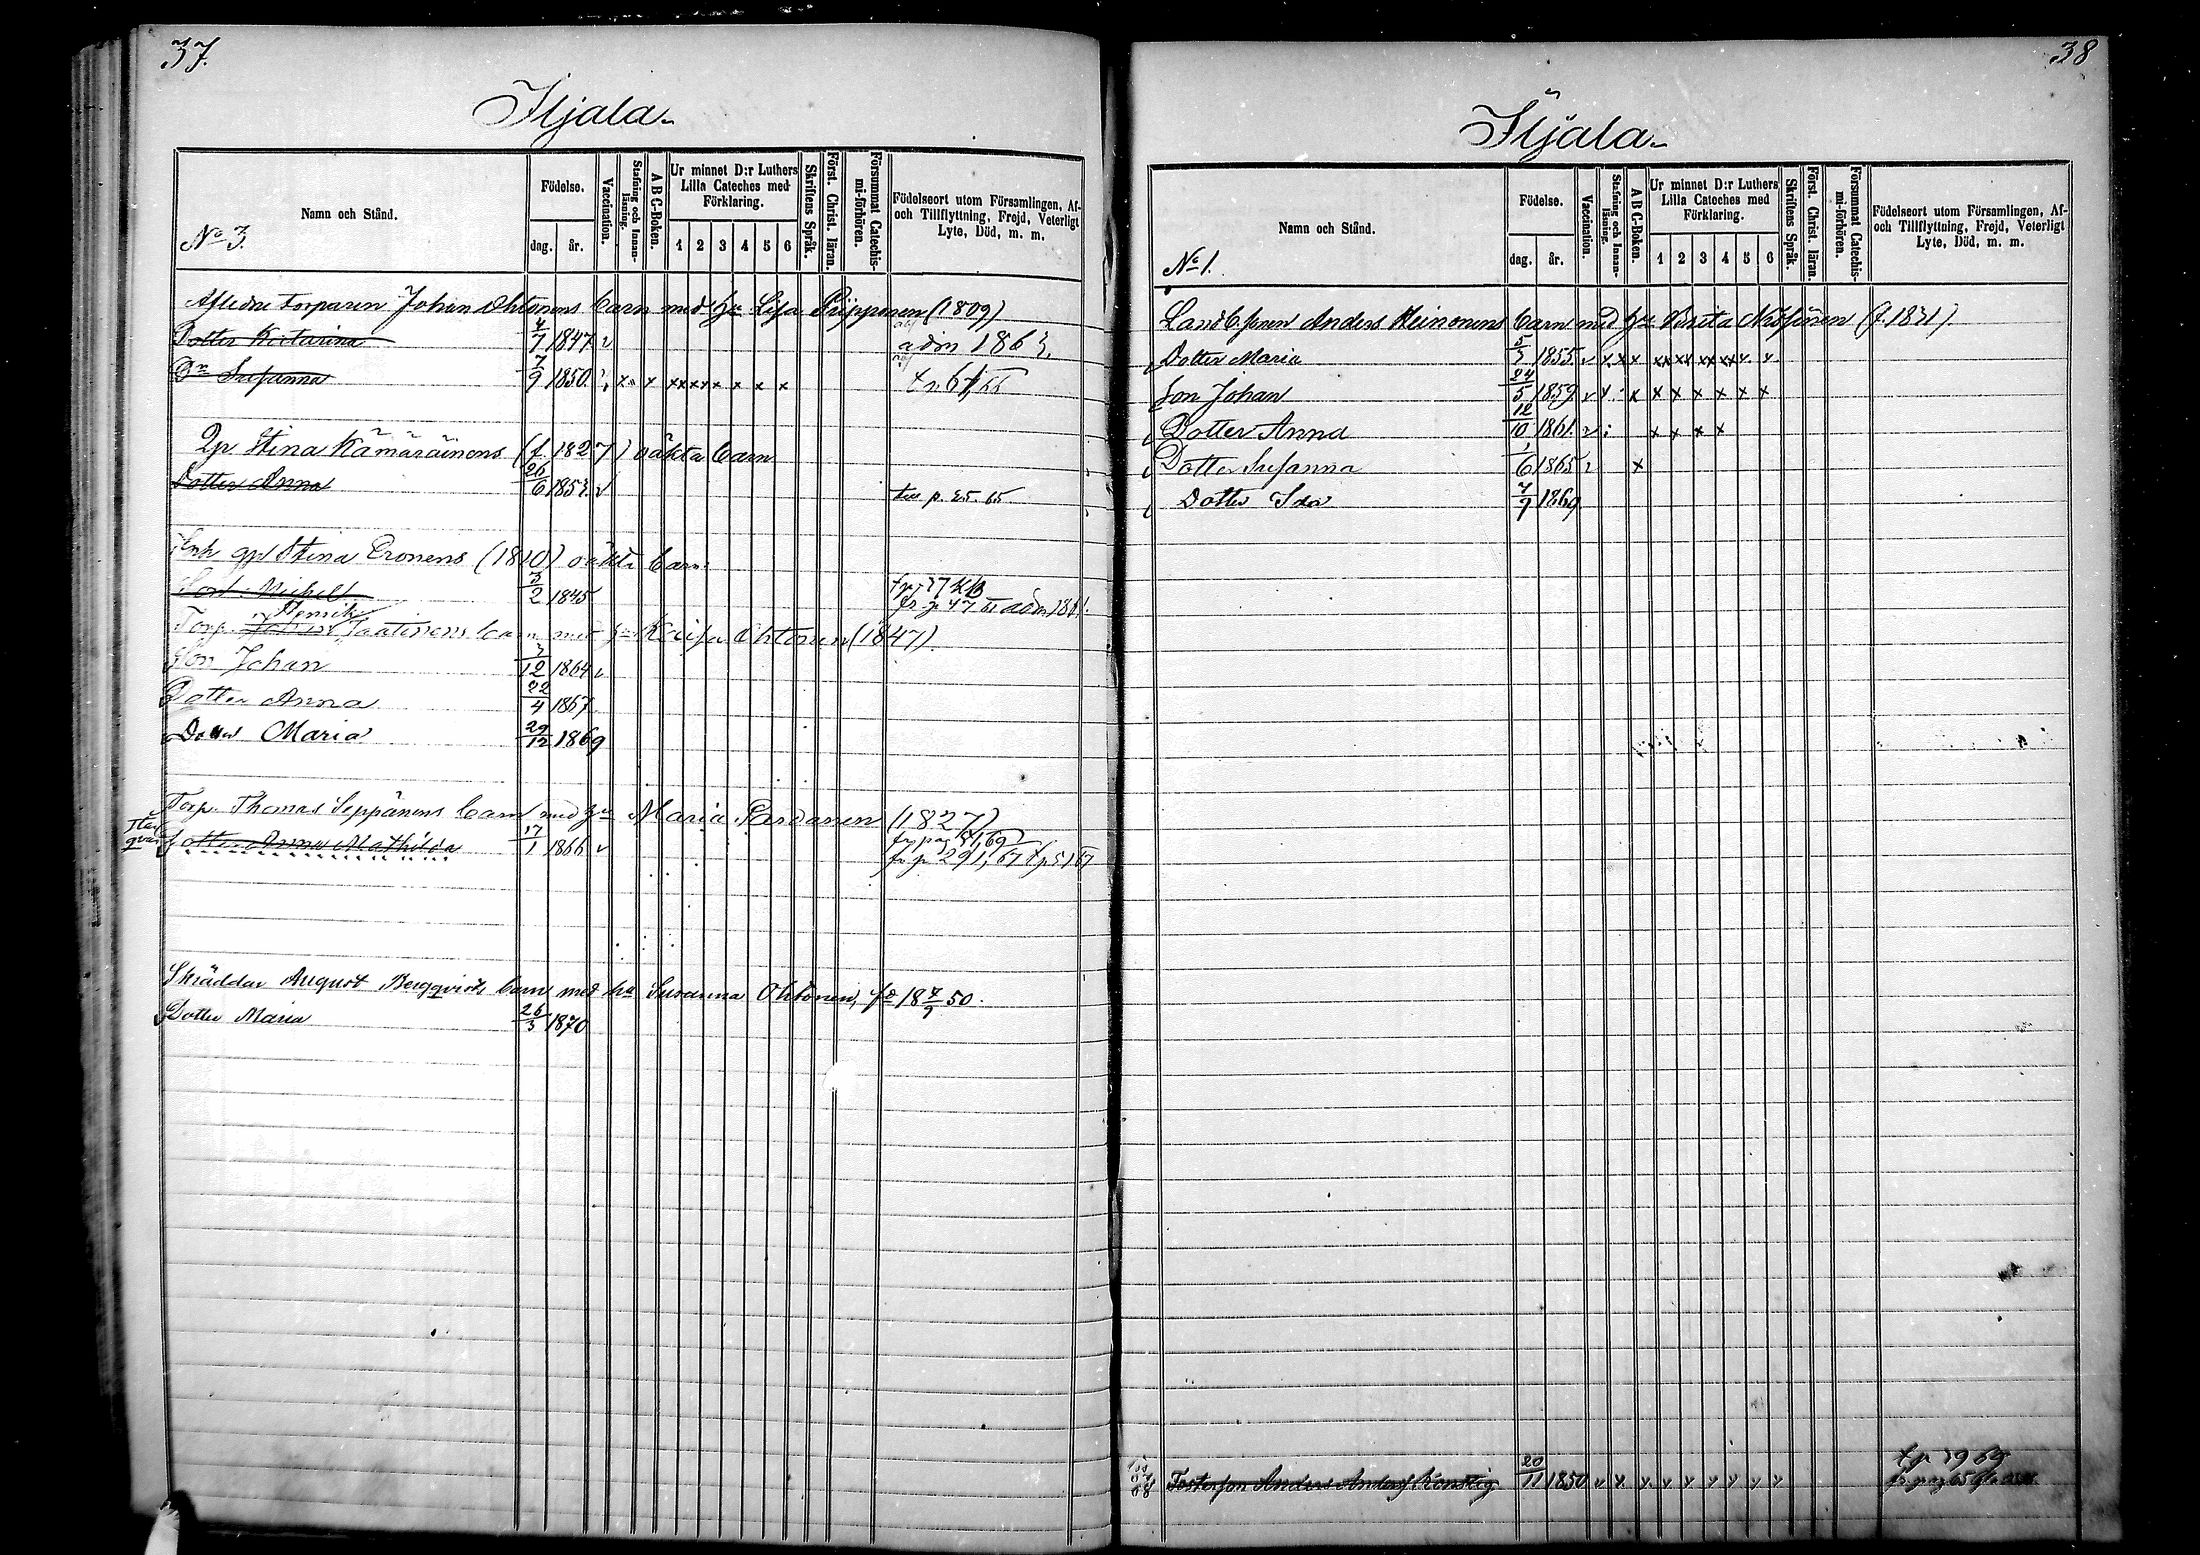 37.
Iljala
Namn och Stånd.
No 3.
Födelse.
dag.
år.
Vaccination.
Stafning och Innan-läsning.
A B C-Boken.
Ur minnet D:r Luthers Lilla Cateches med Förklaring.
1 2 3 4 5 6
Skriftens Språk.
Först. Christ. läran.
Försummat Catechis-mi-förhören.
Födelseort utom Församlingen, Af- och Tillflyttning, Frejd, Veterligt Lyte, Död, m. m.
Afledne torparen Johan Ohtonens barn med Hu Lisa Piipponen (1809)
Dotter Katarina 4/7 1847. v adm 1863.
Dr Susanna 7/9 1850. v x x x x x x x x x
Qp. Stina Kämäräinens (f. 1827) oäkta barn
Dotter Anna 26/6 1853. v till p. 25. 65
Enk qp Stina Eronens (1810) oäkta barn
Son Michel 3/2 1845
Torp. Henrik Jaatinens barn med Hu Kaisa Ohtonen (1847)
Son Johan 3/12 1864 v
Dotter Anna 22/4 1867
Dotter Maria 29/12 1869
Torp. Thomas Seppänens barn med Hu Maria Pardanen (1827)
Dotter Anna Mathilda 17/1 1866 v fr p 291, 67
Skräddar August Bergqvists barn med hu Susanna Ohtonen, fd 18 7/9 50.
Dotter Maria 26/3 1870
38
Iljala
Namn och Stånd.
No 1.
Födelse.
dag.
år.
Vaccination.
Stafning och Innan-läsning.
A B C-Boken.
Ur minnet D:r Luthers Lilla Cateches med Förklaring.
1 2 3 4 5 6
Skriftens Språk.
Först. Christ. läran.
Försummat Catechis-mi-förhören.
Födelseort utom Församlingen, Af- och Tillflyttning, Frejd, Veterligt Lyte, Död, m. m.
Anders Heinonens barn med Hu (f. 1831).
Dotter Maria 5/3 1855. v x x x xx xx xx xx x x
Son Johan 24/5 1859. v x x x x x x x x
Dotter Anna 12/10 1861. v x x x x
Dotter Susanna 1/6 1865 v x
Dotter Ida 7/9 1869
Fosterson Anders 20/11 1850 v x v v v v v v